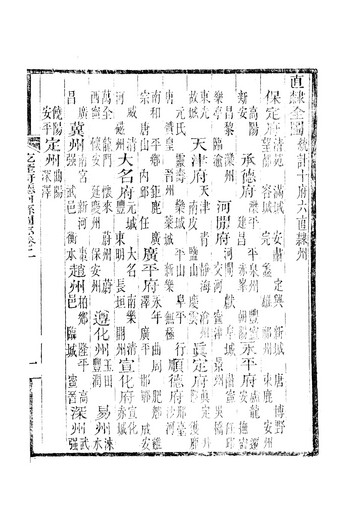 直隸全圖 總計十府六直隸州
保定府 清苑 滿城 安肅 定興 新城 唐 博野
望都 容城 完 蠡 雄 祁州 束鹿 安州
高陽 新安 承德府 灤平 平泉州 豐寧 永平府 盧龍 遷安 撫寧
昌黎 灤州 樂亭 臨榆 河間府 河間 獻 阜城 肅寧 任邱
交河 寧津 景州 吳橋 東光 故城
天津府 天津 青 靜海 滄州 南皮 鹽山 慶雲 正定府 正定 獲鹿
元氏 靈壽 欒城 平山 阜平 行唐 贊皇 晉州 藁城 新樂 無極 順德府 邢臺 沙河
南和 平鄉 鉅鹿 廣宗 唐山 內邱 任 廣平府 永年 曲周 肥鄉 雞澤 廣平 邯鄲 成安
威 清河 磁州 大名府 元城 大名 南樂 清豐 東明 長垣 開州 宣化府 宣化 赤城
萬全 龍門 懷來 蔚州 西寧 懷安 延慶州 保安州 遵化州 玉田 豐潤 易州 淶水
廣昌 冀州 南宮 新河 棗強 武邑 衡水 趙州 柏鄉 隆平 高邑 臨城 寧晉 深州 武強
饒陽 安平 定州 曲陽 深澤